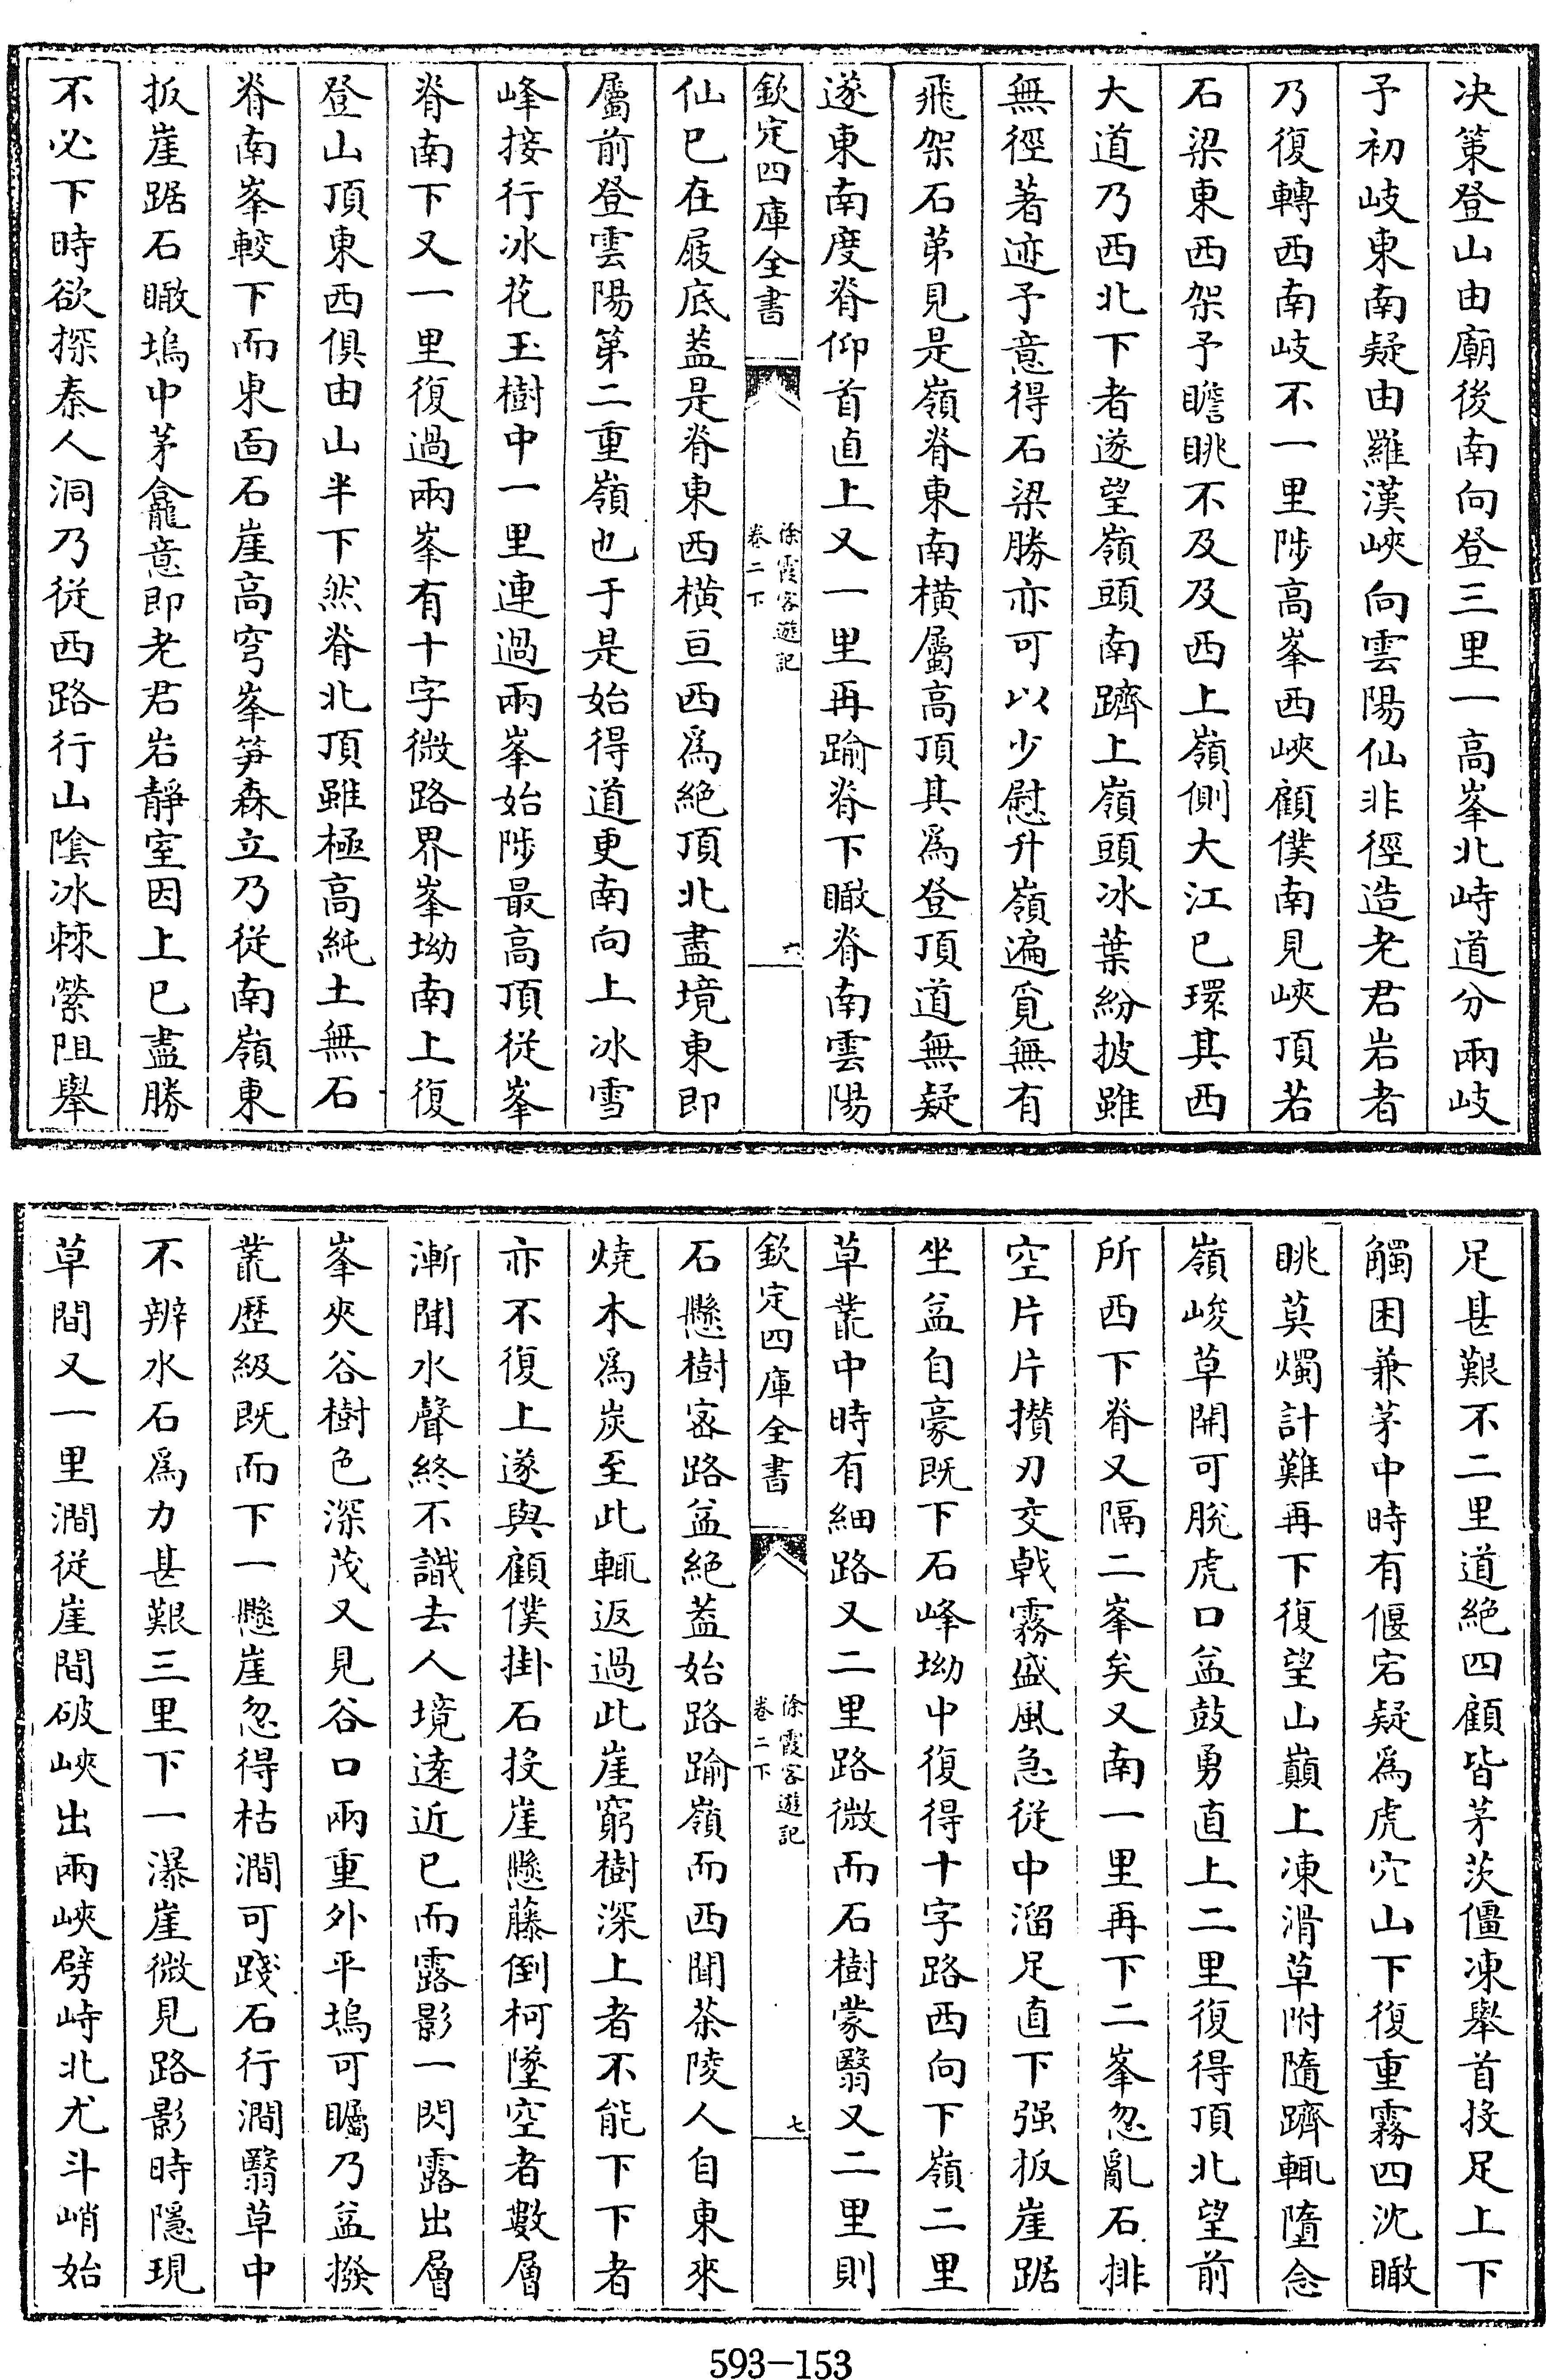 决策登山由廟後南向登三里一高峯北峙道分兩岐
予初岐東南疑由羅漢峽向雲陽仙非徑造老君岩者
乃復轉西南岐不一里陟高峯西峽顧僕南見峽頂若
石梁東西架予瞻眺不及及西上嶺側大江已環其西
大道乃西北下者遂望嶺頭南躋上嶺頭冰葉紛披雖
無徑著迹予意得石梁勝亦可以少慰升嶺遍覓無有
飛架石第見是嶺脊東南橫屬高頂其為登頂道無疑
遂東南度脊仰首直上又一里再踰脊下瞰脊南雲陽
欽定四庫全書
徐霞客遊記
卷二下
六
仙已在屐底蓋是脊東西橫亘西為絕頂北盡境東即
屬前登雲陽第二重嶺也于是始得道更南向上冰雪
峰接行冰花玉樹中一里連過兩峯始陟最高頂從峯
脊南下又一里復過兩峯有十字微路界峯坳南上復
登山頂東西俱由山半下然脊北頂雖極高純土無石
脊南峯較下而東面石崖高穹峯笋森立乃從南嶺東
扳崖踞石瞰塢中茅龕意即老君岩靜室因上已盡勝
不必下時欲探秦人洞乃從西路行山陰冰棘縈阻舉
足甚艱不二里道絕四顧皆茅茨僵凍舉首投足上下
觸困兼茅中時有偃宕疑為虎穴山下復重霧四沈瞰
眺莫燭計難再下復望山巔上凍滑草附隨躋輒墮念
嶺峻草開可脫虎口益鼓勇直上二里復得頂北望前
所西下脊又隔二峯矣又南一里再下二峯忽亂石排
空片片攢刃交戟霧盛風急從中溜足直下强扳崖踞
坐益自豪既下石峰坳中復得十字路西向下嶺二里
草叢中時有細路又二里路微而石樹蒙翳又二里則
欽定四庫全書
徐霞客遊記
卷二下
七
石懸樹宻路益絕蓋始路踰嶺而西聞茶陵人自東來
燒木為炭至此輒返過此崖窮樹深上者不能下下者
亦不復上遂與顧僕掛石投崖懸藤倒柯墜空者數層
漸聞水聲終不識去人境遠近已而露影一閃露出層
峯夾谷樹色深茂又見谷口兩重外平塢可矚乃益撥
叢歷級既而下一懸崖忽得枯澗可踐石行澗翳草中
不辨水石為力甚艱三里下一瀑崖微見路影時隱現
草間又一里澗從崖間破峽出兩峽劈峙北尤斗峭始
593-153